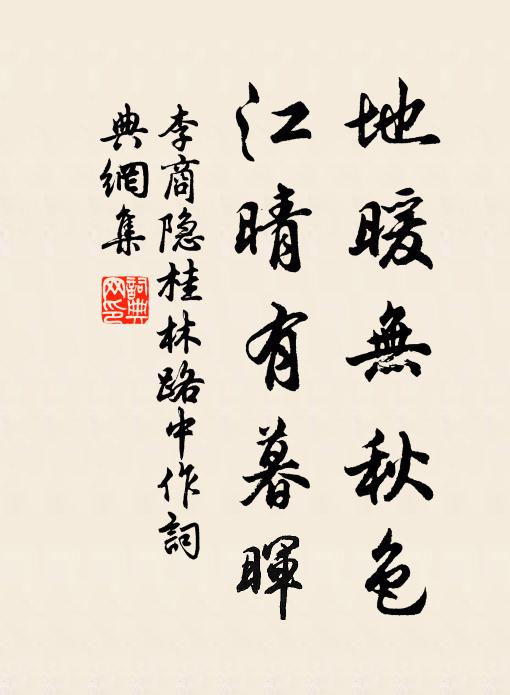 地暖無秋色
江晴有暮暉
李商隐桂林路中作詞
典網集
詞典
网印